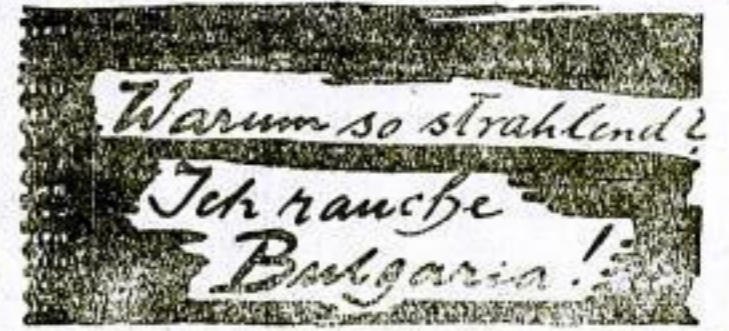 Warum so strahlend?
Ich rauche
Bulgaria!